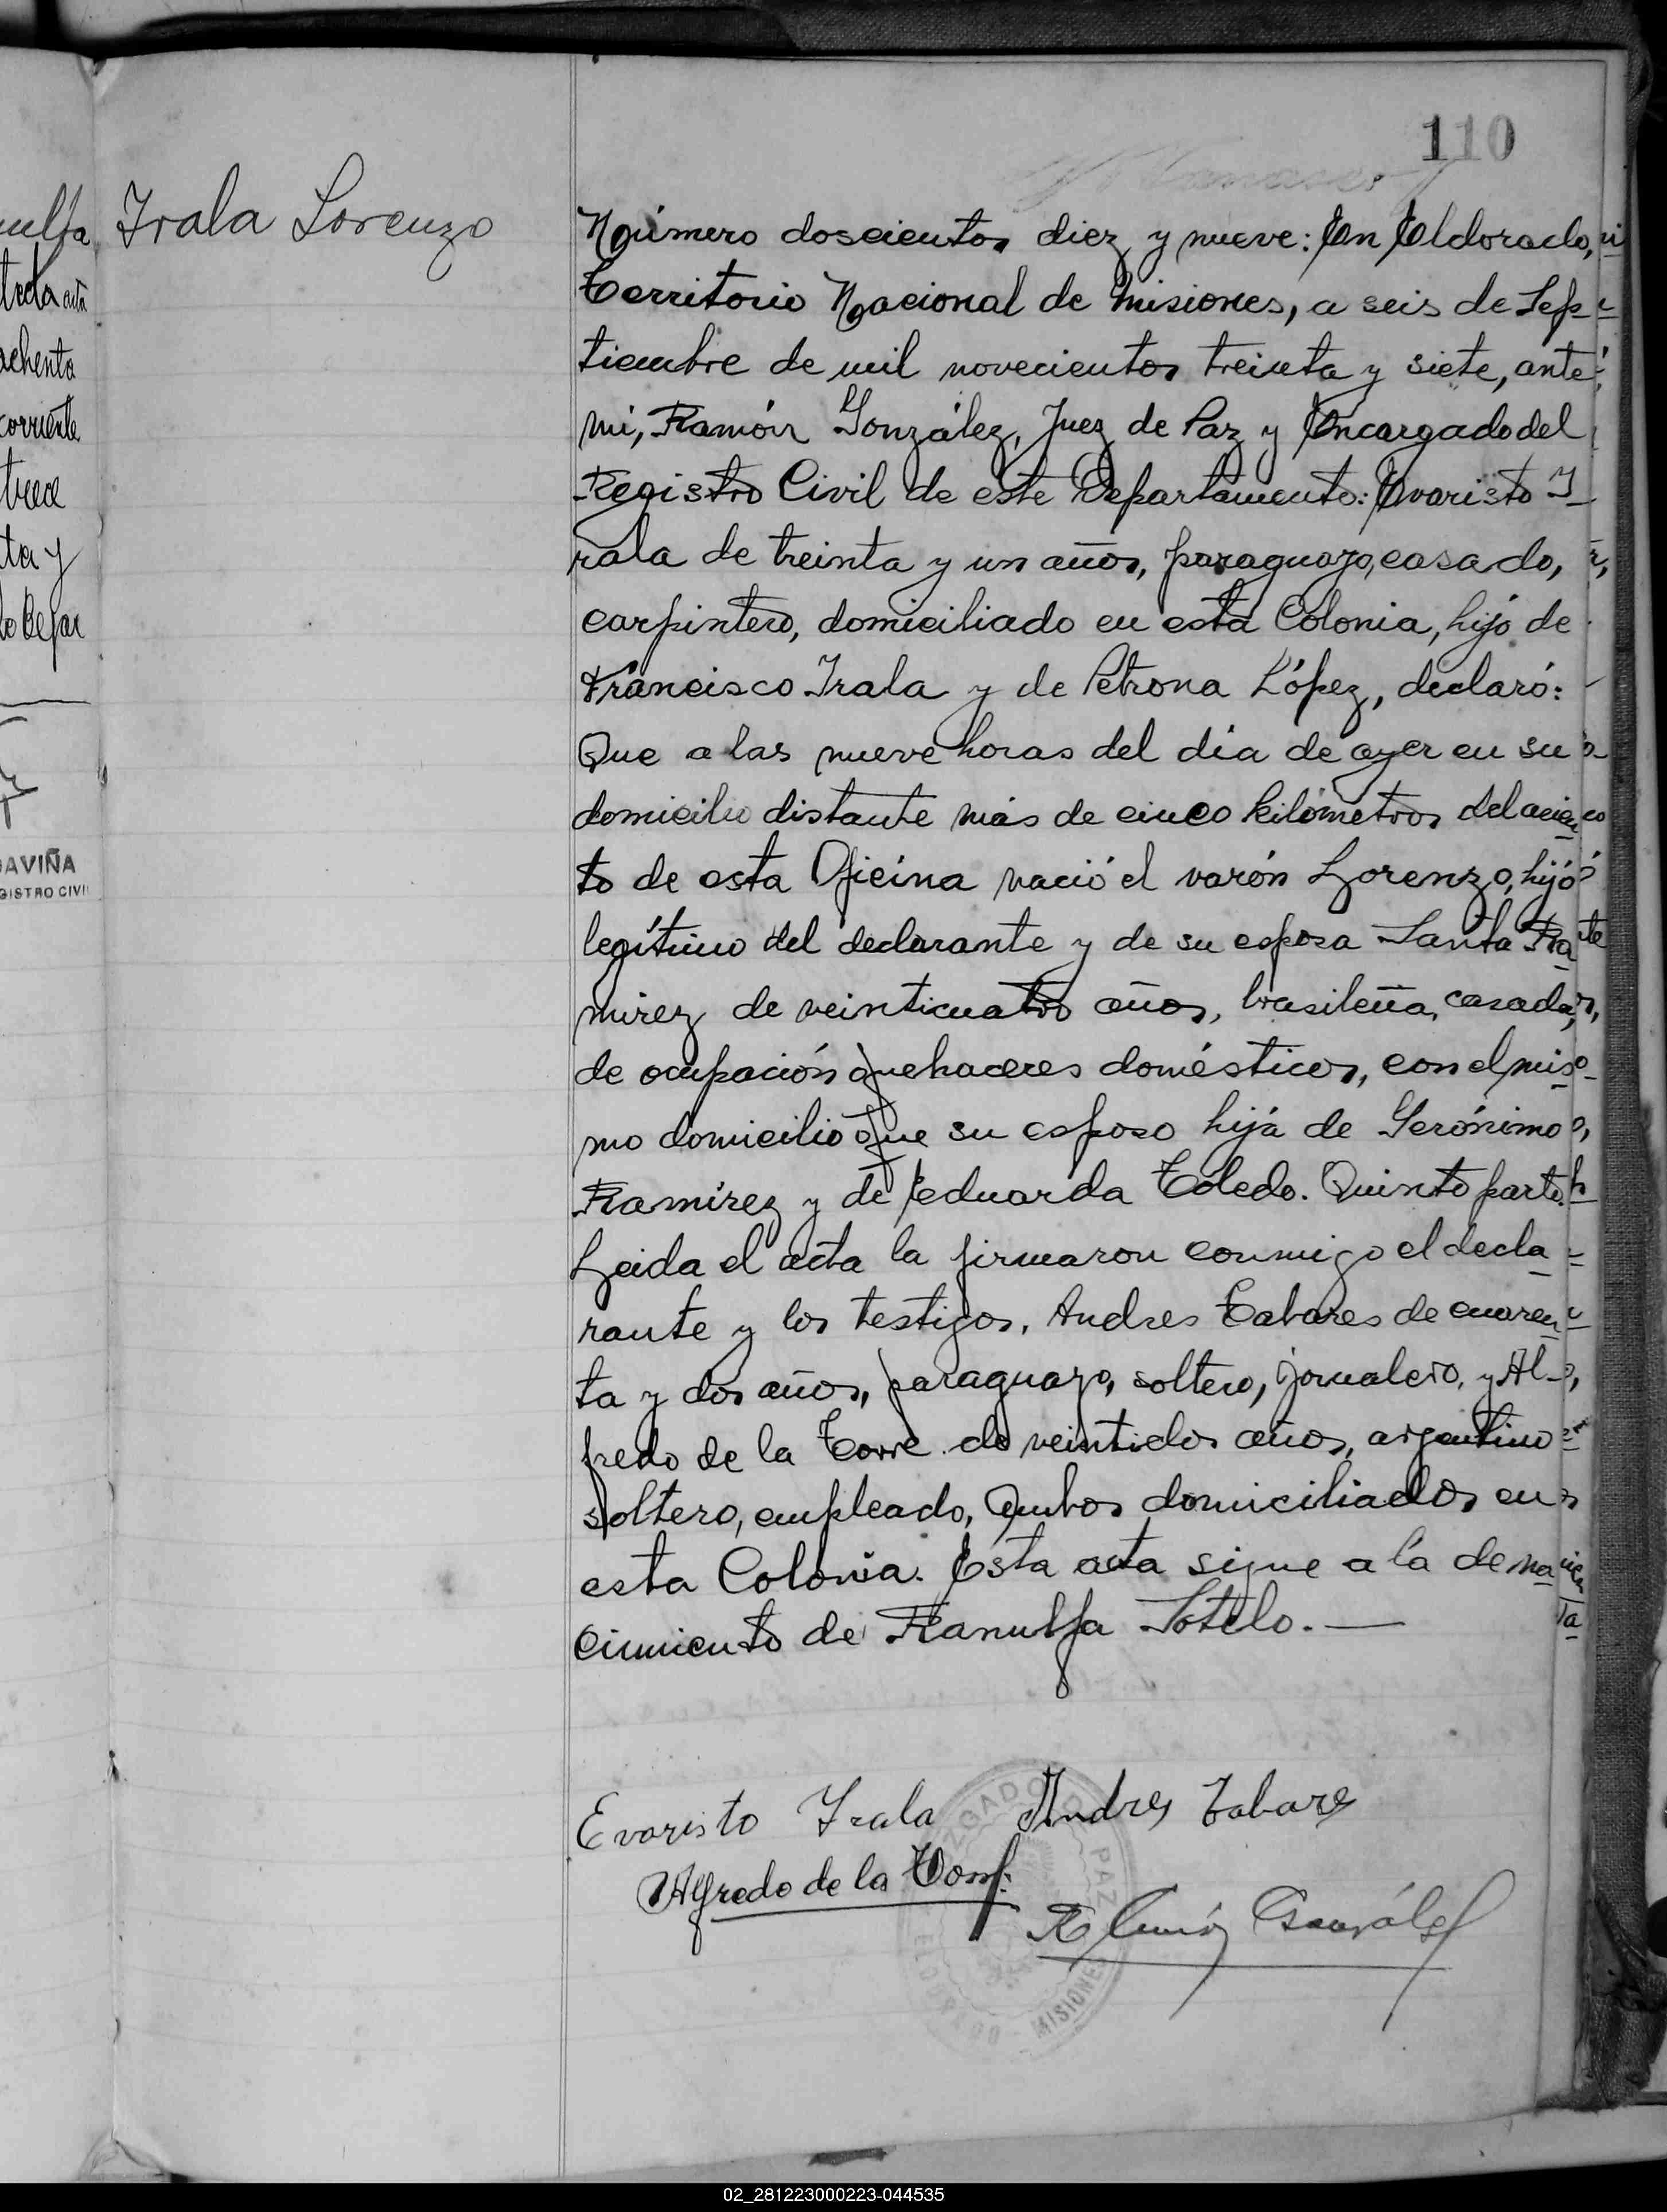 110
Irala Lorenzo
Número doscientos diez y nueve: En Eldorado,
Territorio Nacional de Misiones, a seis de Sep-
tiembre de mil novecientos treinta y siete, ante
mí, Ramón González, Juez de Paz y Encargado del
Registro Civil de este Departamento: Evaristo I-
rala de treinta y un años, paraguayo, casado,
carpintero, domiciliado en esta Colonia, hijo de
Francisco Irala y de Petrona López, declaró:
Que a las nueve horas del día de ayer en su
domicilio distante más de cinco kilómetros del acien
to de esta Oficina nació el varón Lorenzo, hijo
legítimo del declarante y de su esposa Santa Ra
mirez de veinticuatro años, brasileña, casada,
de ocupación quehaceres domésticos, con el mis-
mo domicilio que su esposo hija de Gerónimo
Ramírez y de Eduarda Toledo. Quinto parto.
Leida el acta la firmaron conmigo el decla-
rante y los testigos, Andres Tabares de cuaren-
ta y dos años, paraguayo, soltero, jornalero, y Al-
fredo de la Torre de veintidos años, argentino
soltero, empleado, ambos domiciliados en
esta Colonia. Esta acta sigue a la de na
cimiento de Ranulfa Sotelo. —
Evaristo Irala Andres Tabares
Alfredo de la Torre
Ramón González
JUZGADO DE PAZ
ELDORADO - MISIONES
ulfa
acta
ochenta
corriente
trece
ta y
AVIÑA
GISTRO CIVI
02_281223000223-044535